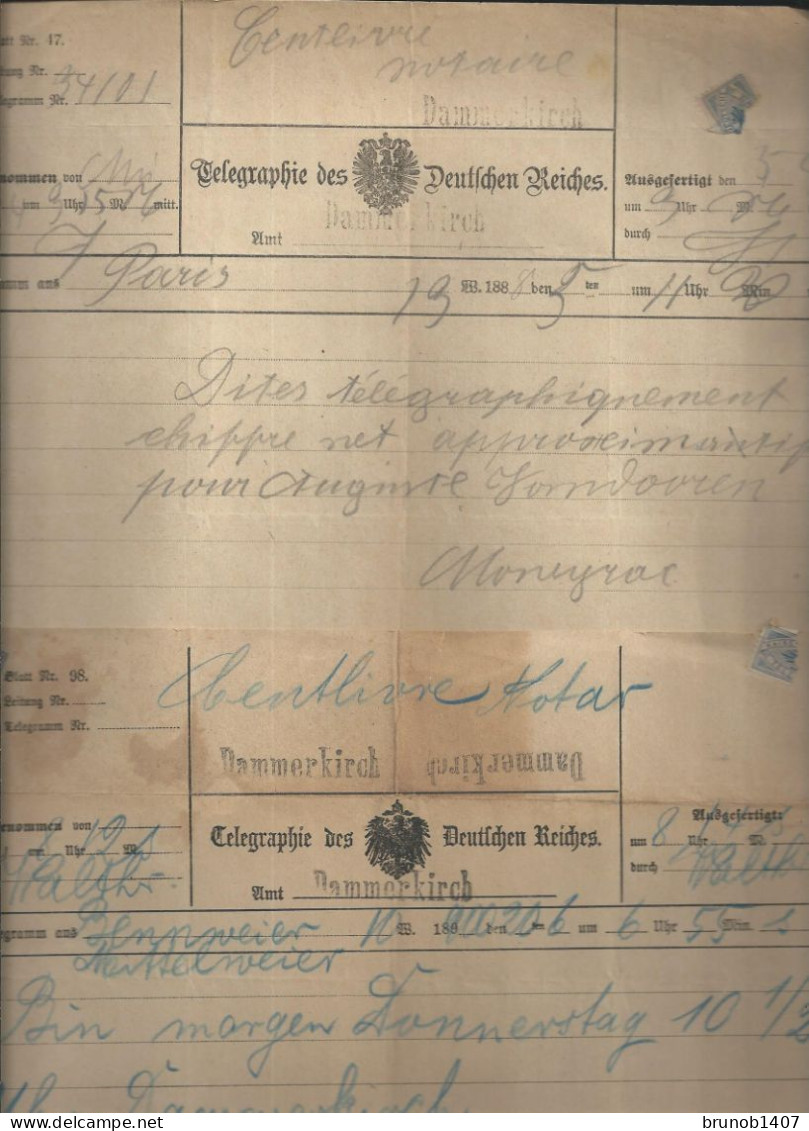 Blatt Nr. 47.
Leitung Nr.
Telegramm Nr. 34101
Centlivre
notaire
Dammerkirch
Telegraphie des Deutschen Reiches.
Amt Dammerkirch
nommen von
um Uhr M. mitt.
Ausgefertigt den
um 9 Uhr M.
durch
Paris 19 W. 1888 den 5 ten um 11 Uhr Min
Dites télégraphiquement
chiffre net approximatif
pour Auguste Vandooren
Moneyrac
Blatt Nr. 98.
Leitung Nr.
Telegramm Nr.
Centlivre Notar
Dammerkirch Dammerkirch
Telegraphie des Deutschen Reiches.
Amt Dammerkirch
nommen von
um Uhr M.
Ausgefertigt:
um 8 Uhr M.
durch
gramm aus Bennweier 10 W. 189 den ten um 6 Uhr 55 Min. s
Mittelweier
Bin morgen Donnerstag 10 1/2
Dammerkirch
brunob1407